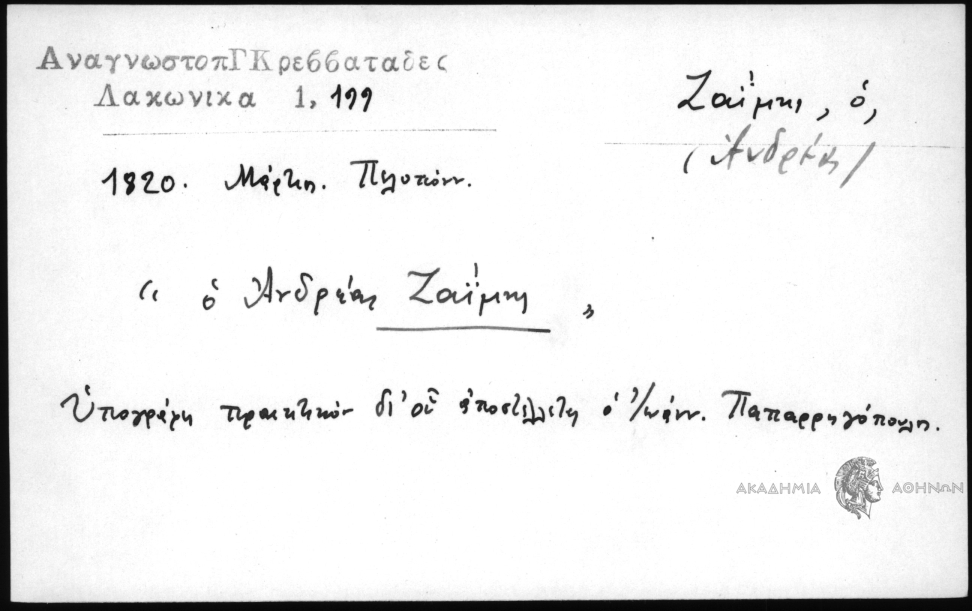 ΑναγνωστοπΓΚρεββαταδες
Λακωνικα 1, 199
Ζαΐμης, ὁ,
(Ἀνδρέας)
1820. Μάρτης. Πελοπόνν.
“ ὁ Ἀνδρέας Ζαΐμης „
Ὑπογράφει πρακτικὸν δι' οὗ ἀποστέλλεται ὁ Ἰωάνν. Παπαρρηγόπουλος.
ΑΚΑΔΗΜΙΑ ΑΘΗΝΩΝ